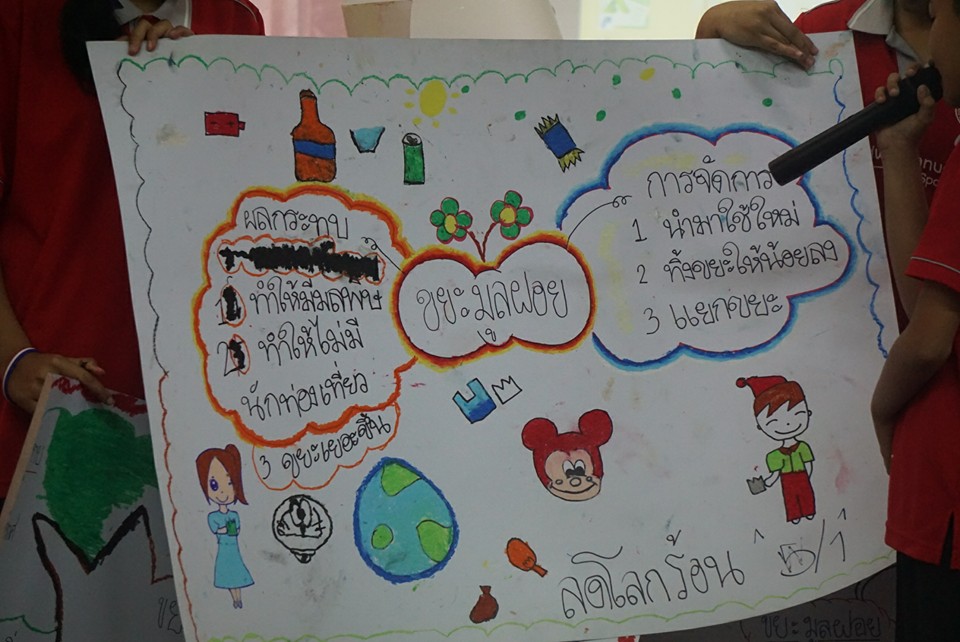 ผลกระทบ
1 ทำให้มีมลพิษ
2 ทำให้ไม่มี
นักท่องเที่ยว
3 ขยะเยอะขึ้น
ขยะมูลฝอย
การจัดการ
1 นำมาใช้ใหม่
2 ทิ้งขยะให้น้อยลง
3 แยกขยะ
ลดโลกร้อน
ขยะมูลฝอย